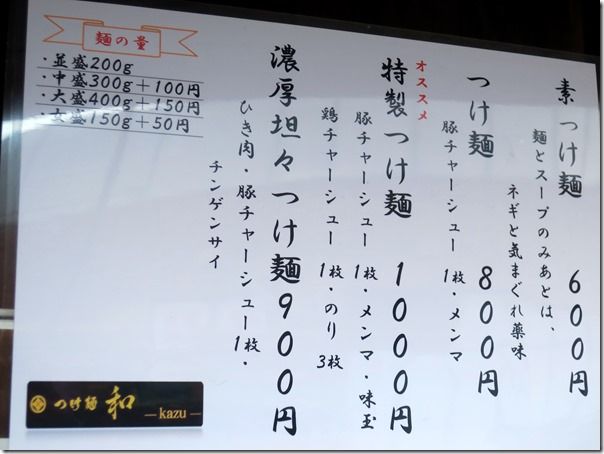 素つけ麺 600円
麺とスープのみあとは、
ネギと気まぐれ薬味
つけ麺 800円
豚チャーシュー1枚・メンマ
オススメ
特製つけ麺 1000円
豚チャーシュー1枚・メンマ・味玉
鶏チャーシュー1枚・のり3枚
濃厚坦々つけ麺900円
ひき肉・豚チャーシュー1枚・
チンゲンサイ
麺の量
・並盛200g
・中盛300g+100円
・大盛400g+150円
・女盛150g+50円
つけ麺 和
—kazu—